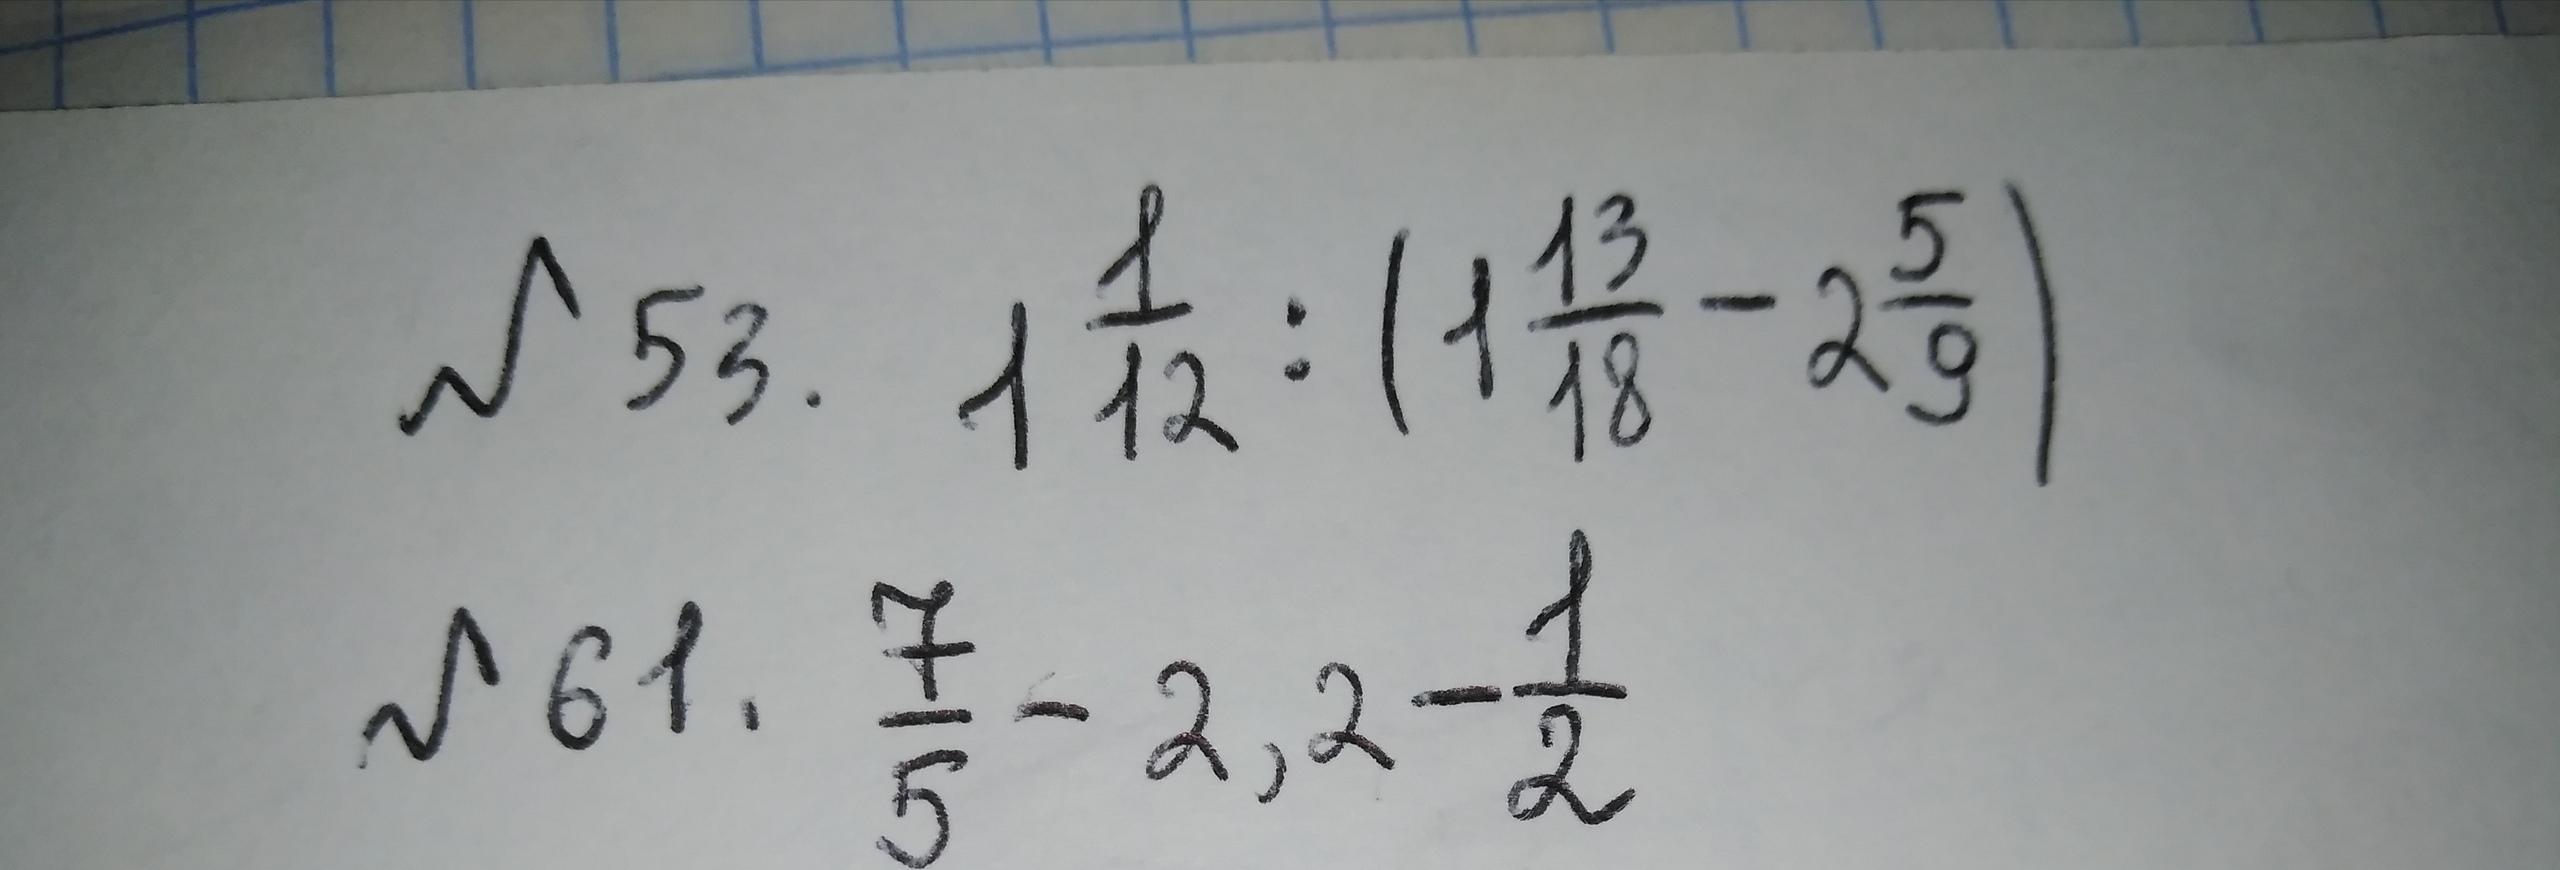 № 53. 1 1/12 : (1 13/18 - 2 5/9)
№ 61. 7/5 - 2,2 - 1/2